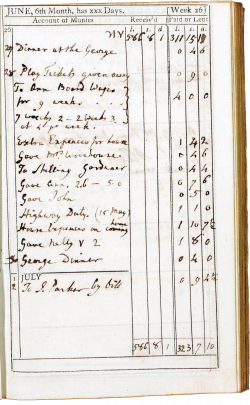 JUNE, 6th Month, has xxx Days. [Week 26]
Account of Monies Receiv'd Paid or Lent
l. s. d. l. s. d.
586 8 1 311 15 11
27 Dinner at the George 0 4 6
28 Play Tickets given away 0 9 0
To Ann Board Wages
for 9 weeks 4 0 0
7 weeks 2 - 2 weeks 3
at per week
Extra Expences for house 1 4 2
Gave Mrs Woodhouse 0 4 6
To Gardener 0 4 4
Gave Ann, 2.6 - 5.0 0 7 6
Gave John 0 5 0
Highway Duty (15 May) 1 1 0
House Expences on coming home 1 10 7½
Gave Nelly & 2 1 8 0
30 George Dinner 0 4 0
JULY
1
2 To J. Parker by Bill 0 9 4½
586 8 1 323 7 10